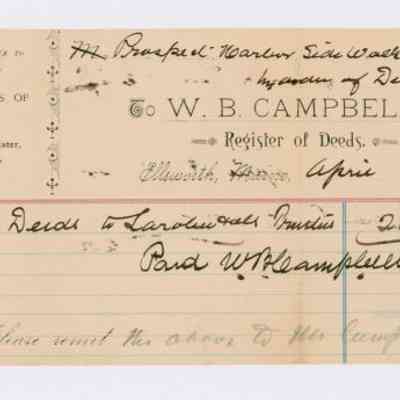 S OF
ater,
M Prospect Harbor Side Walk
by order of De
To W. B. CAMPBEL
Register of Deeds.
Ellsworth, Maine, April
Deeds to Trustees 2
Paid W. B. Campbell
Please remit the above to Geo Camp